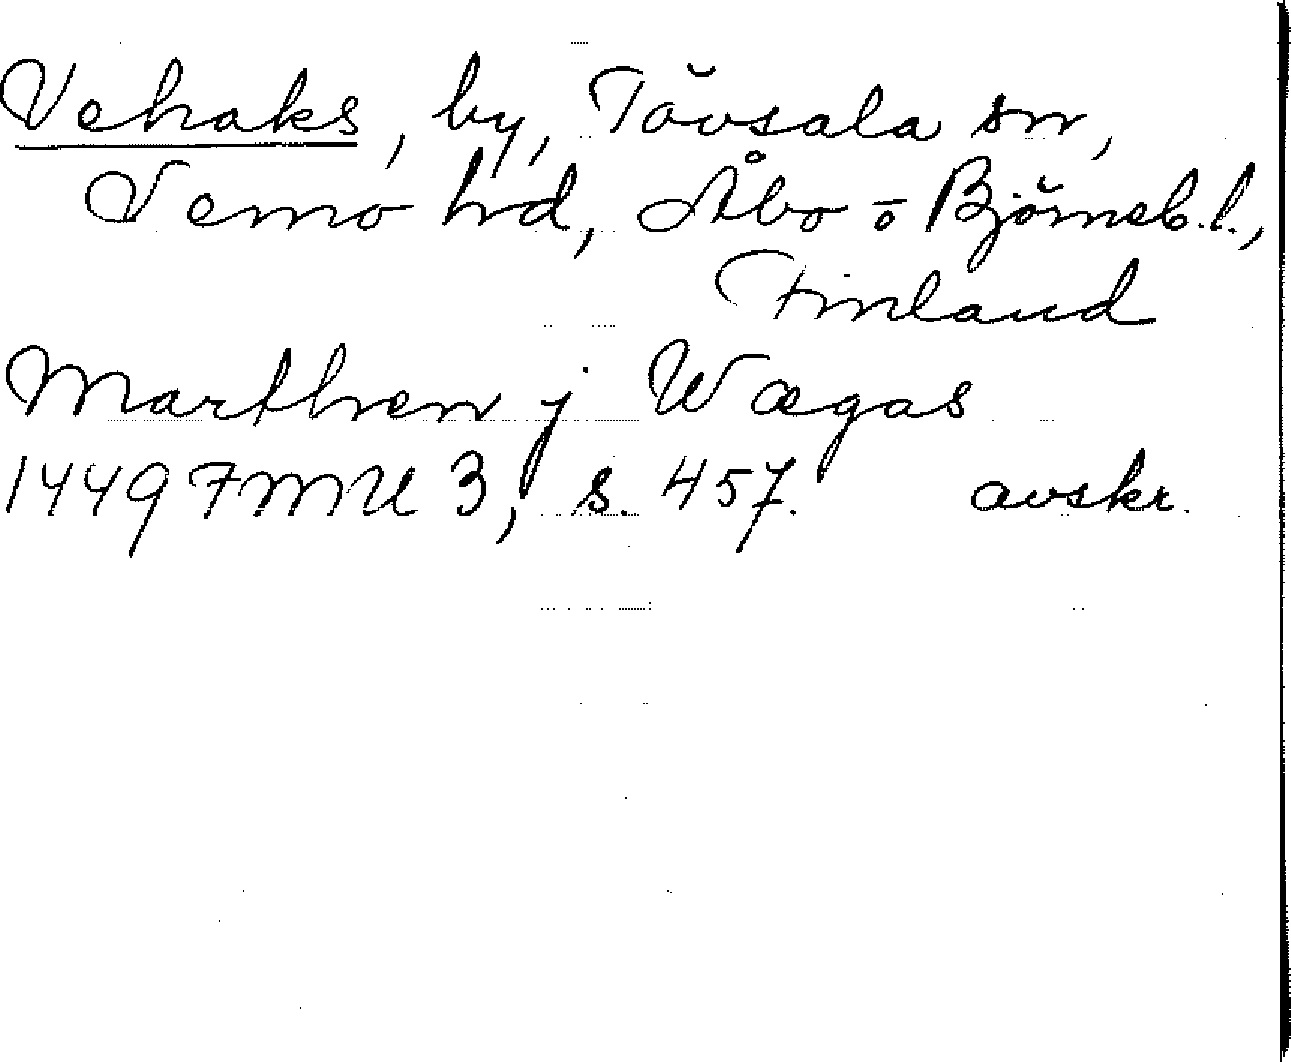 Vehaks, by, Tövsala sn,
Vemo hd, Åbo o Björneb. l.,
Finland
Marthen j Wægas
1449 FMU 3, s. 457. avskr.